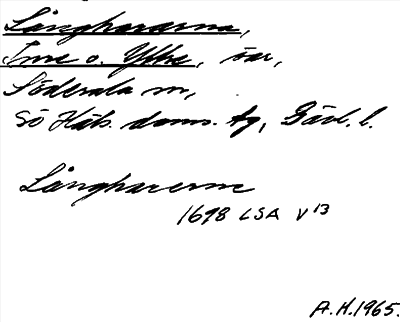 Långhararna,
Inre o. Yttre, öar,
Söderala sn,
Sö Häls. doms. tg, Gävl. l.
Långharerne
1698 LSA V 13
A.H. 1965.